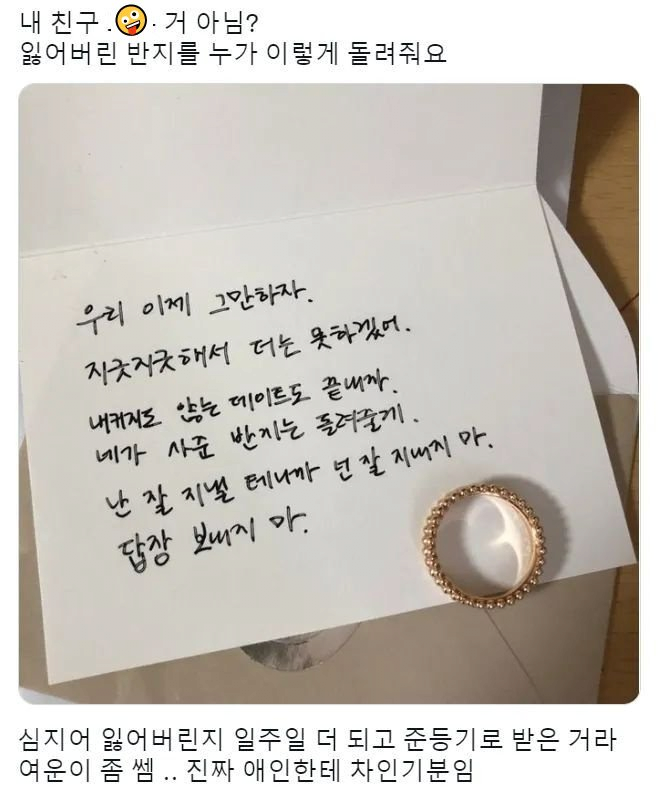 내 친구 .🤪· 거 아님?
잃어버린 반지를 누가 이렇게 돌려줘요
우리 이제 그만하자.
지긋지긋해서 더는 못하겠어.
내키지도 않는 데이트도 끝내자.
네가 사준 반지는 돌려줄게.
난 잘 지낼 테니까 넌 잘 지내지 마.
답장 보내지 마.
심지어 잃어버린지 일주일 더 되고 준등기로 받은 거라
여운이 좀 쎔 .. 진짜 애인한테 차인기분임